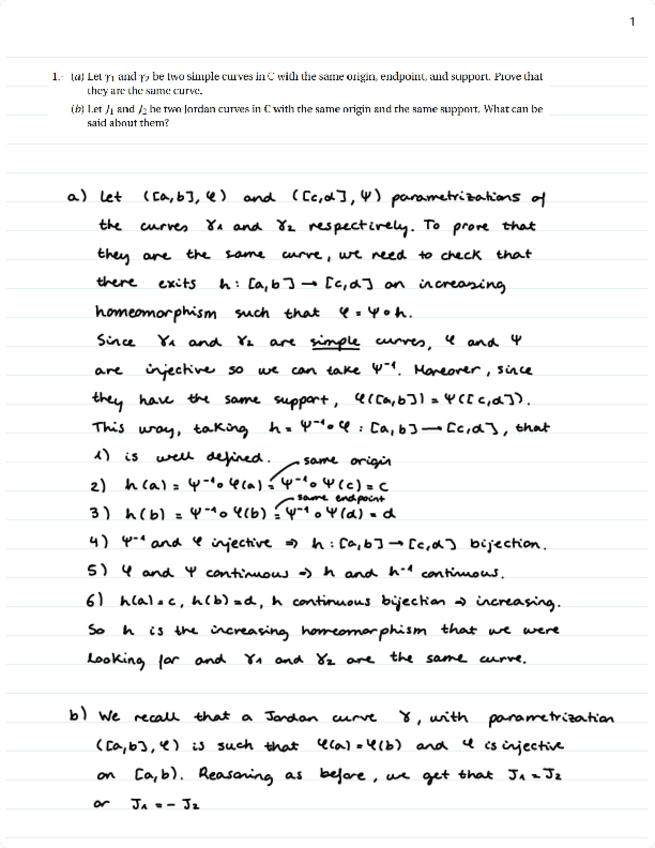 1
1. (a) Let γ₁ and γ₂ be two simple curves in ℂ with the same origin, endpoint, and support. Prove that
they are the same curve.
(b) Let J₁ and J₂ be two Jordan curves in ℂ with the same origin and the same support. What can be
said about them?
a) Let ([a,b], φ) and ([c,d], ψ) parametrizations of
the curves γ₁ and γ₂ respectively. To prove that
they are the same curve, we need to check that
there exits h: [a,b] → [c,d] an increasing
homeomorphism such that φ = ψ∘h.
Since γ₁ and γ₂ are simple curves, φ and ψ
are injective so we can take ψ⁻¹. Moreover, since
they have the same support, φ([a,b]) = ψ([c,d]).
This way, taking h = ψ⁻¹∘φ : [a,b] → [c,d], that
1) is well defined. same origin
2) h(a) = ψ⁻¹∘φ(a) = ψ⁻¹∘ψ(c) = c
same endpoint
3) h(b) = ψ⁻¹∘φ(b) = ψ⁻¹∘ψ(d) = d
4) ψ⁻¹ and φ injective ⇒ h: [a,b] → [c,d] bijection.
5) φ and ψ continuous ⇒ h and h⁻¹ continuous.
6) h(a) = c, h(b) = d, h continuous bijection ⇒ increasing.
So h is the increasing homeomorphism that we were
looking for and γ₁ and γ₂ are the same curve.
b) We recall that a Jordan curve γ, with parametrization
([a,b], φ) is such that φ(a) = φ(b) and φ is injective
on [a,b). Reasoning as before, we get that J₁ = J₂
or J₁ = - J₂